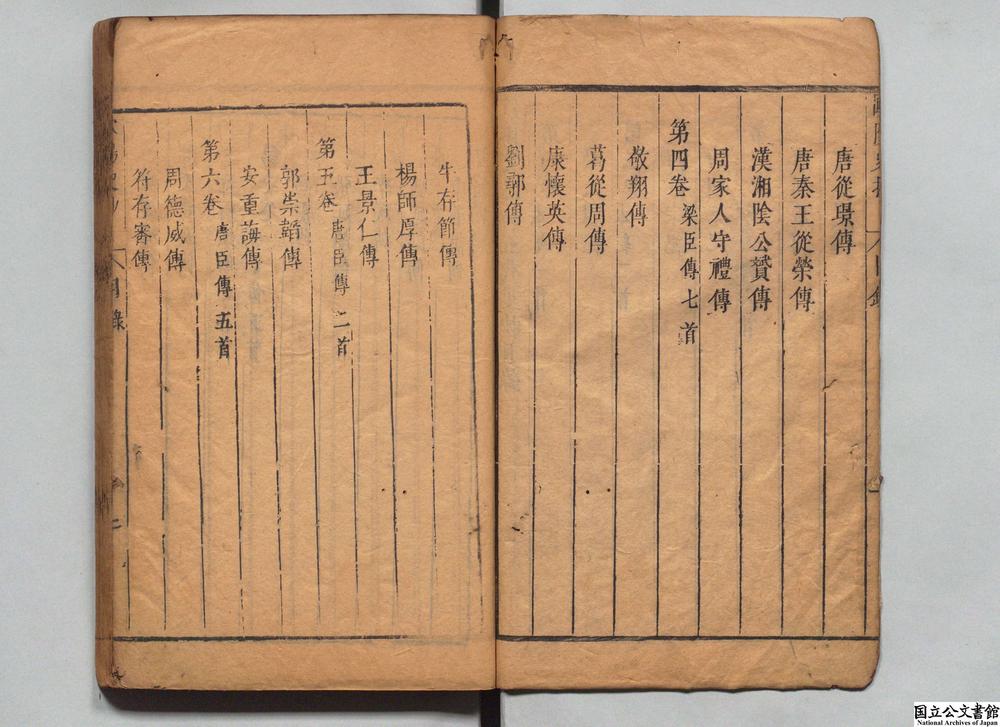 唐從璟傳
唐秦王從榮傳
漢湘陰公贇傳
周家人守禮傳
第四卷 梁臣傳 七首
敬翔傳
葛從周傳
康懷英傳
劉鄩傳
牛存節傳
楊師厚傳
王景仁傳
第五卷 唐臣傳 二首
郭崇韜傳
安重誨傳
第六卷 唐臣傳 五首
周德威傳
符存審傳
目錄
二
国立公文書館
National Archives of Japan